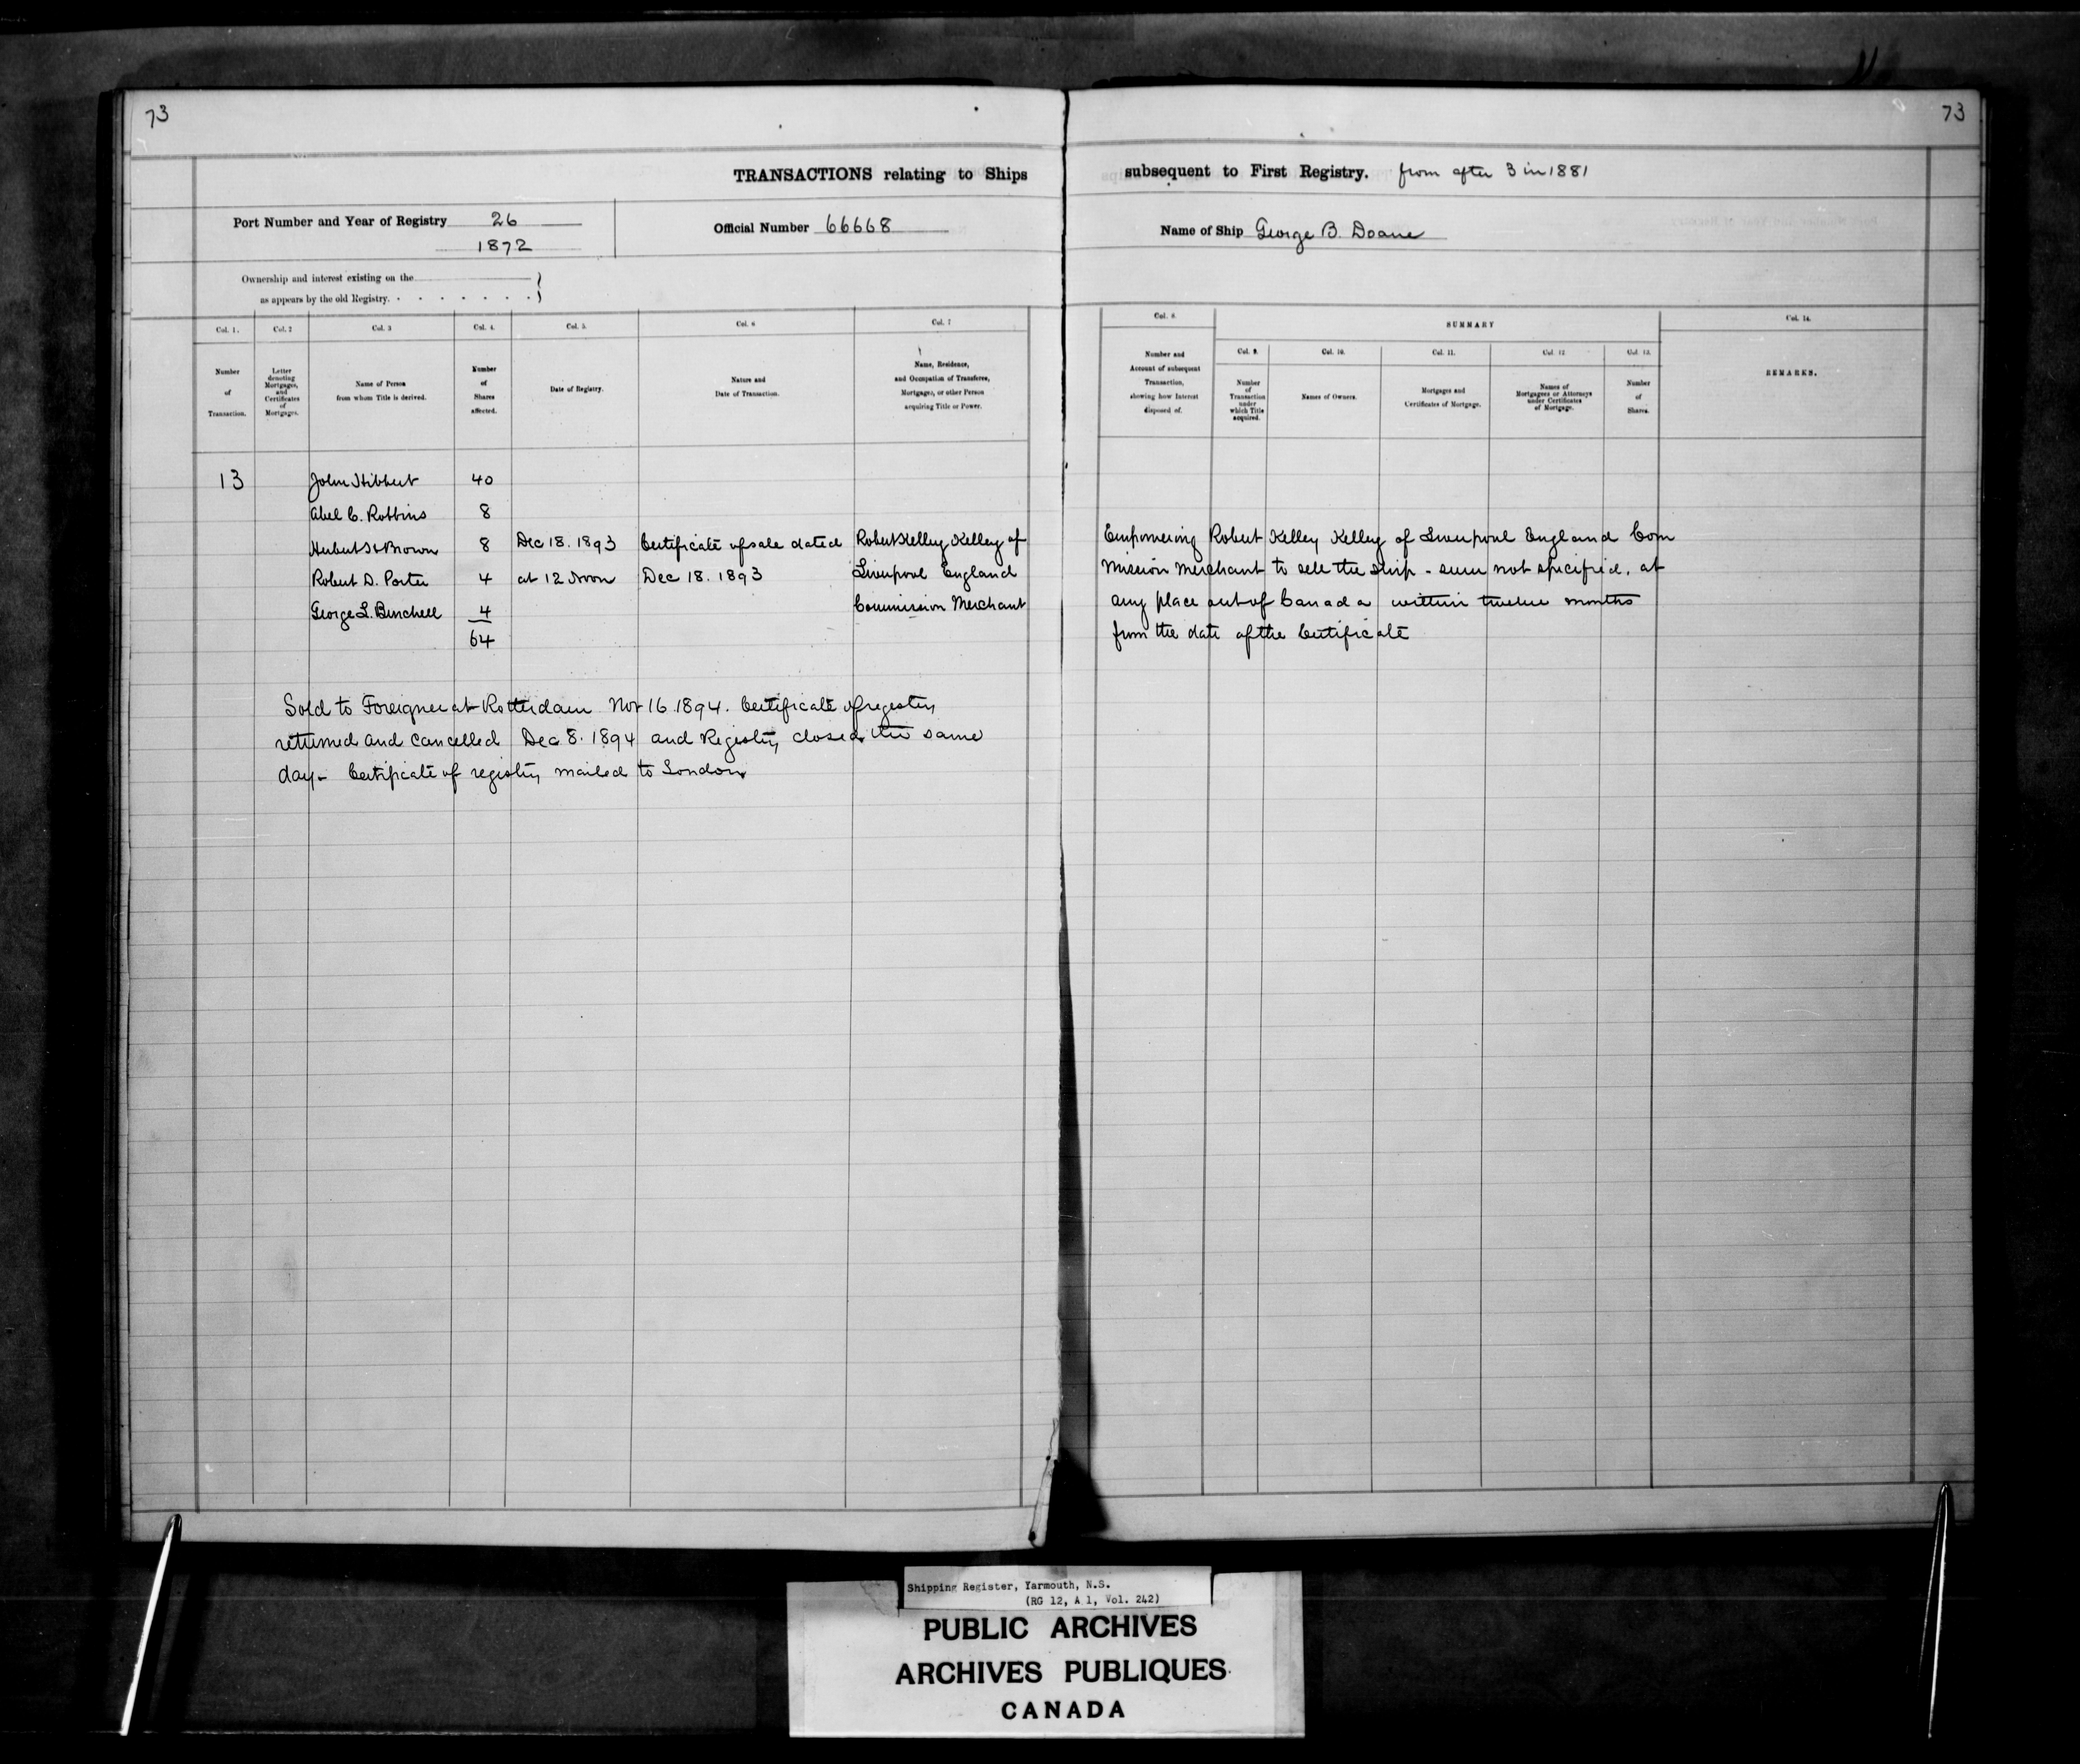 73
73
TRANSACTIONS relating to Ships subsequent to First Registry. from after 3 in 1881
Port Number and Year of Registry 26
1872
Official Number 66668
Name of Ship George B. Doane
Ownership and interest existing on the
as appears by the old Registry.
Col. 1.
Col. 2
Col. 3
Col. 4.
Col. 5.
Col. 6
Col. 7
Col. 8.
SUMMARY
Col. 14.
Col. 9.
Col. 10.
Col. 11.
Col. 12
Col. 13.
Number
of
Transaction.
Letter
denoting
Mortgages,
and
Certificates
of
Mortgages.
Name of Person
from whom Title is derived.
Number
of
Shares
affected.
Date of Registry.
Nature and
Date of Transaction.
Name, Residence,
and Occupation of Transferee,
Mortgagee, or other Person
acquiring Title or Power.
Number and
Account of subsequent
Transaction,
showing how Interest
disposed of.
Number
of
Transaction
under
which Title
acquired.
Names of Owners.
Mortgages and
Certificates of Mortgage.
Names of
Mortgagees or Attorneys
under Certificates
of Mortgage.
Number
of
Shares.
REMARKS.
13 John Hibbert 40
Abel C. Robbins 8
Herbert H Brown 8 Dec 18. 1893 Certificate of sale dated Robert Kelley Kelley of
Robert D. Porter 4 at 12 Noon Dec 18. 1893 Liverpool England
George L. Burchell 4 Commission Merchant
64
Empowering Robert Kelley Kelley of Liverpool England Com
mission Merchant to sell the ship - sum not specified. at
any place out of Canada within twelve months
from the date of the Certificate
Sold to Foreigner at Rotterdam Nov 16 1894. Certificate of registry
returned and cancelled Dec 8. 1894 and Registry closed the same
day - Certificate of registry mailed to London
Shipping Register, Yarmouth, N.S.
(RG 12, A 1, Vol. 242)
PUBLIC ARCHIVES
ARCHIVES PUBLIQUES
CANADA